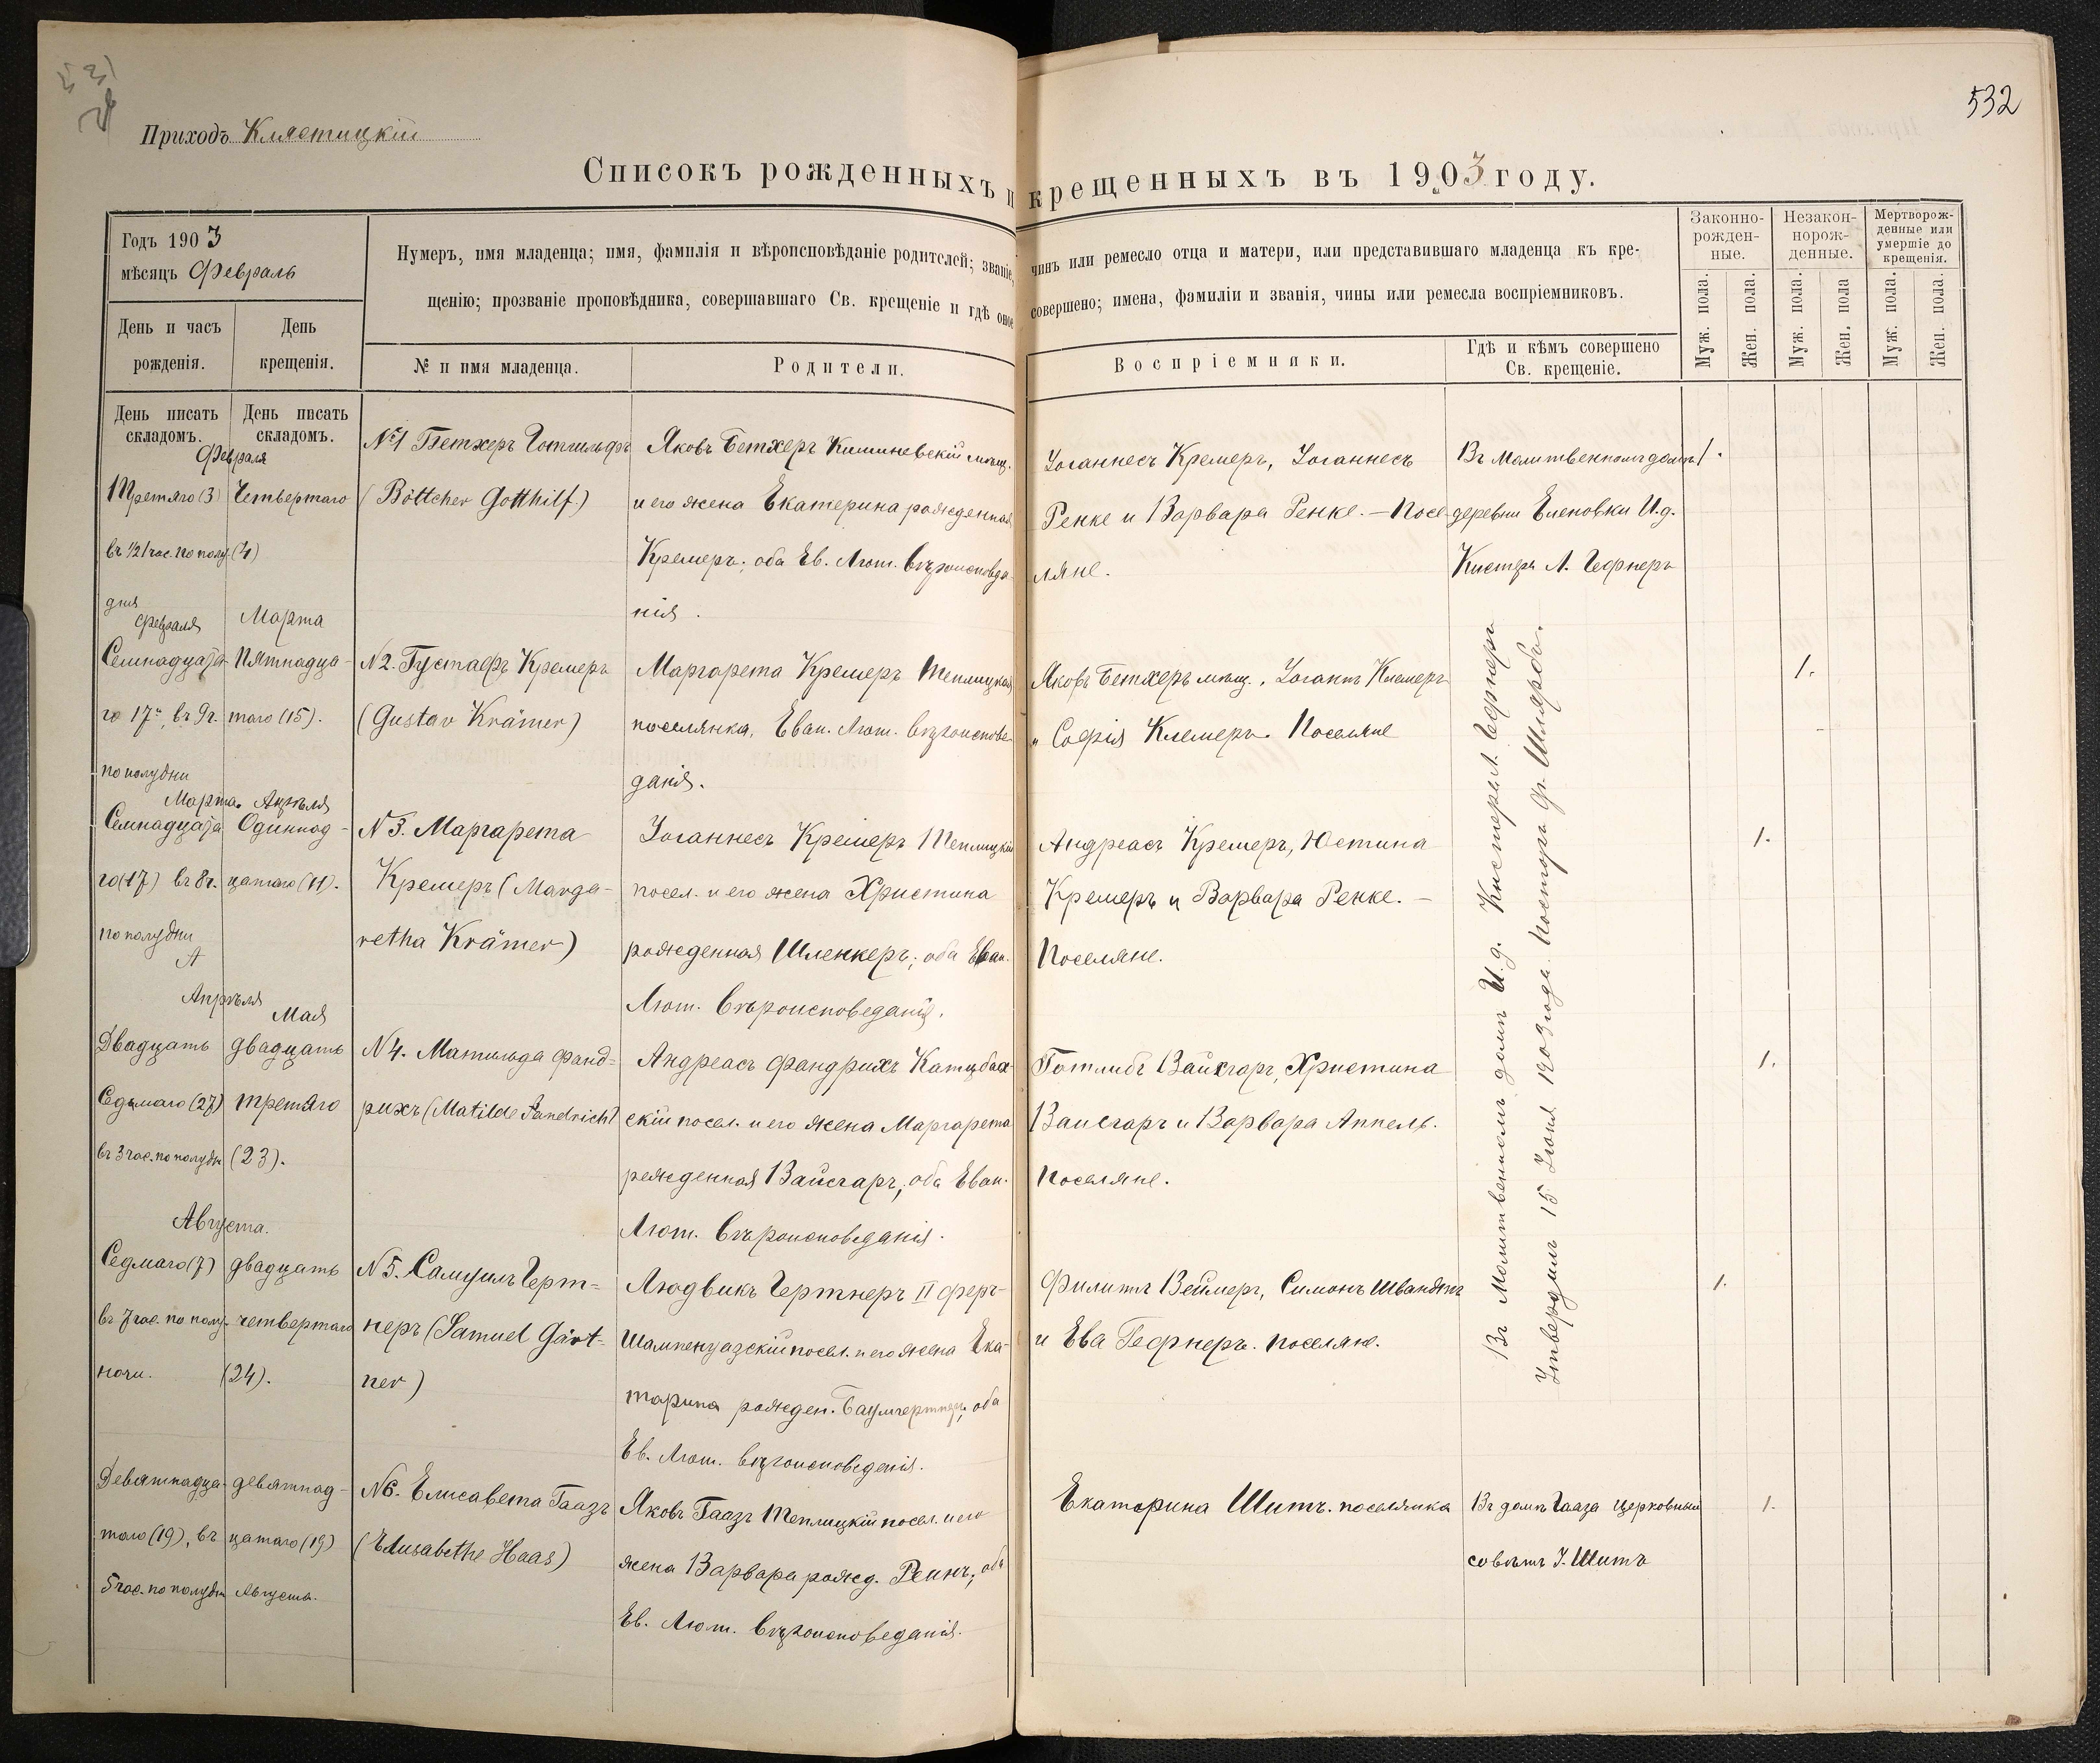 531
532
Приходъ Клястицкій
Списокъ рожденныхъ и крещенныхъ въ 1903 году.
Годъ 1903
мѣсяцъ Февраль
Нумеръ, имя младенца; имя, фамилія и вѣроисповѣданіе родителей; званіе, чинъ или ремесло отца и матери, или представившаго младенца къ кре-
щенію; прозваніе проповѣдника, совершавшаго Св. крещеніе и гдѣ оное совершено; имена, фамиліи и званія, чины или ремесла воспріемниковъ.
Законно-
рожден-
ные.
Незакон-
норож-
денные.
Мертворож-
денные или
умершіе до
крещенія.
Муж. пола.
Жен. пола.
Муж. пола.
Жен. пола
Муж. пола.
Жен. пола.
День и часъ
рожденія.
День
крещенія.
№ и имя младенца.
Родители.
Воспріемники.
Гдѣ и кѣмъ совершено
Св. крещеніе.
День писать
складомъ.
День писать
складомъ.
Февраля
Третяго (3)
въ 1/2 1 час. по полу
дня
Четвертаго
(4)
№1 Бетхеръ Готгильфъ
(Böttcher Gotthilf.)
Яковъ Бетхеръ Кишиневскій мѣщ.
и его жена Екатерина рожденная
Кремеръ; оба Ев. Лют. вѣроисповѣда-
нія.
Іоганнесъ Кремеръ, Іоганнесъ
Ренке и Варвара Ренке. — Посе-
ляне.
Въ Молитвенномъ домѣ
деревни Еленовки И.д.
Кистера А. Гефнеръ
1.
Февраля
Семнадцата-
го 17го, въ 9ч.
по полудни
Марта
Пятнадца-
таго (15).
№2. Густафъ Кремеръ
(Gustav Krämer)
Маргарета Кремеръ Теплицкая
поселянка, Еван. Лют. вѣроиспове-
данія.
Яковъ Бетхеръ мѣщ., Іоганъ Клемеръ
" Софія Клемеръ. Поселяне
1.
Марта.
Семнадцата
го (17) въ 8ч.
по полудни
А
Апрѣля
Одиннад-
цатаго (11).
№3. Маргарета
Кремеръ (Marga-
retha Krämer)
Іоганнесъ Кремеръ Теплицкій
посел. и его жена Христина
рожденная Шленкеръ; оба Еван.
Лют. Вѣроисповеданія.
Андреасъ Кремеръ, Юстина
Кремеръ и Варвара Ренке. —
Поселяне.
1.
Апрѣля
Двадцать
Седьмаго (27)
въ 3 час. по полудн
Мая
двадцать
третяго
(23).
№4. Матильда Фанд-
рихъ (Matilde Fandrich)
Андреасъ Фандрихъ Катцбах-
скій посел. и его жена Маргарета
рожденная Вайсгаръ; оба Еван.
Лют. Вѣроисповеданія.
Готлибъ Вайсгаръ, Христина
Вайсгаръ и Варвара Аппель.
Поселяне.
1.
Августа.
Седмаго (7)
въ 7 час. по полу-
ночи.
двадцать
четвертаго
(24).
№5. Самуилъ Герт-
неръ (Samuel Gärt-
ner)
Людвикъ Гертнеръ II Фер-
Шампенуазскій посел. и его жена Ека-
тарина рожден. Баумгертнеръ; оба
Ев. Лют. вѣроисповеденія.
Филиппъ Веймеръ, Симонъ Швандтъ
и Ева Гефнеръ. поселяне.
1.
Въ Молитвенномъ домѣ И.д. Кистера А. Гефнеръ
Утвердилъ 15 Іюня 1903 года. Пасторъ Фр. Шлярбъ.
Девятнадца-
таго (19), въ
5 час. по полудн
девятнад-
цатаго (19)
Августа.
№6. Елисавета Гаазъ
(Elisabethe Haas)
Яковъ Гаазъ Теплицкій посел. и его
жена Варвара рожд. Реинъ; оба
Ев. Лют. вѣроисповеданія.
Екатерина Шитъ. поселянка
Въ домѣ Гааза церковный
совѣтъ І. Шитъ
1.